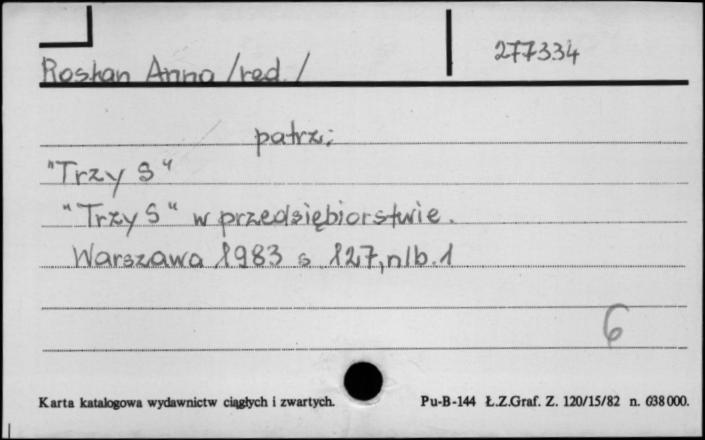 Roshan Anna /red./
277334
patrz;
"Trzy S"
"Trzy S" w przedsiębiorstwie.
Warszawa 1983 s 127, nlb. 1
6
Karta katalogowa wydawnictw ciągłych i zwartych.
Pu-B-144 Ł.Z.Graf. Z. 120/15/82 n. 038000.